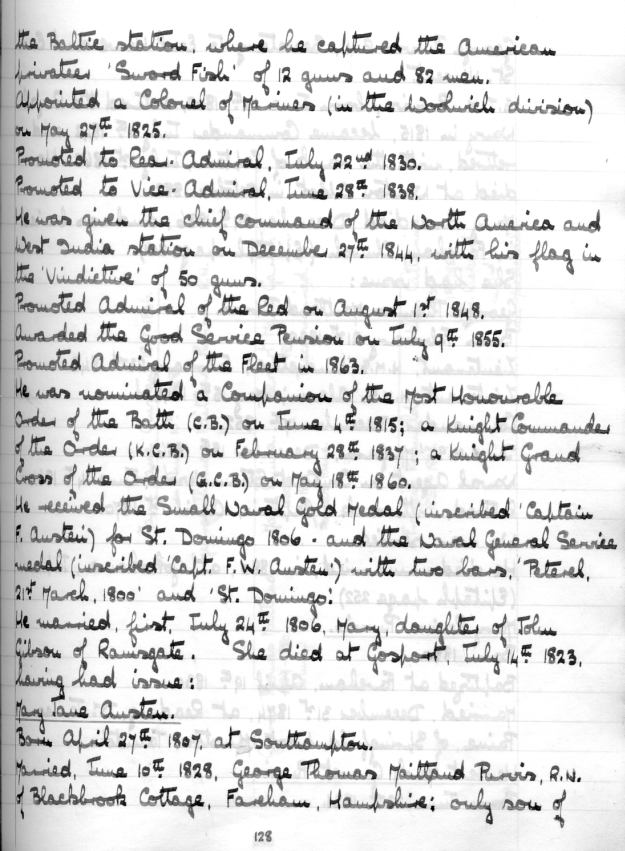 the Baltic station, where he captured the American
privateer 'Sword Fish' of 12 guns and 82 men.
Appointed a Colonel of Marines (in the Woolwich division)
on May 27th 1825.
Promoted to Rear-Admiral, July 22nd 1830.
Promoted to Vice-Admiral, June 28th 1838.
He was given the chief command of the North America and
West India station on December 27th 1844, with his flag in
the 'Vindictive' of 50 guns.
Promoted Admiral of the Red on August 1st 1848.
Awarded the Good Service Pension on July 9th 1855.
Promoted Admiral of the Fleet in 1863.
He was nominated a Companion of the Most Honourable
Order of the Bath (C.B.) on June 4th 1815; a Knight Commander
of the Order (K.C.B.) on February 28th 1837; a Knight Grand
Cross of the Order (G.C.B.) on May 18th 1860.
He received the Small Naval Gold Medal (inscribed 'Captain
F. Austen') for St. Domingo 1806 - and the Naval General Service
medal (inscribed 'Capt. F.W. Austen') with two bars, 'Peterel,
21st March, 1800' and 'St. Domingo'.
He married, first, July 24th 1806, Mary, daughter of John
Gibson of Ramsgate. She died at Gosport, July 14th 1823,
having had issue:
Mary Jane Austen.
Born April 27th 1807, at Southampton.
Married, June 10th 1828, George Thomas Maitland Purvis, R.N.
of Blackbrook Cottage, Fareham, Hampshire; only son of
128